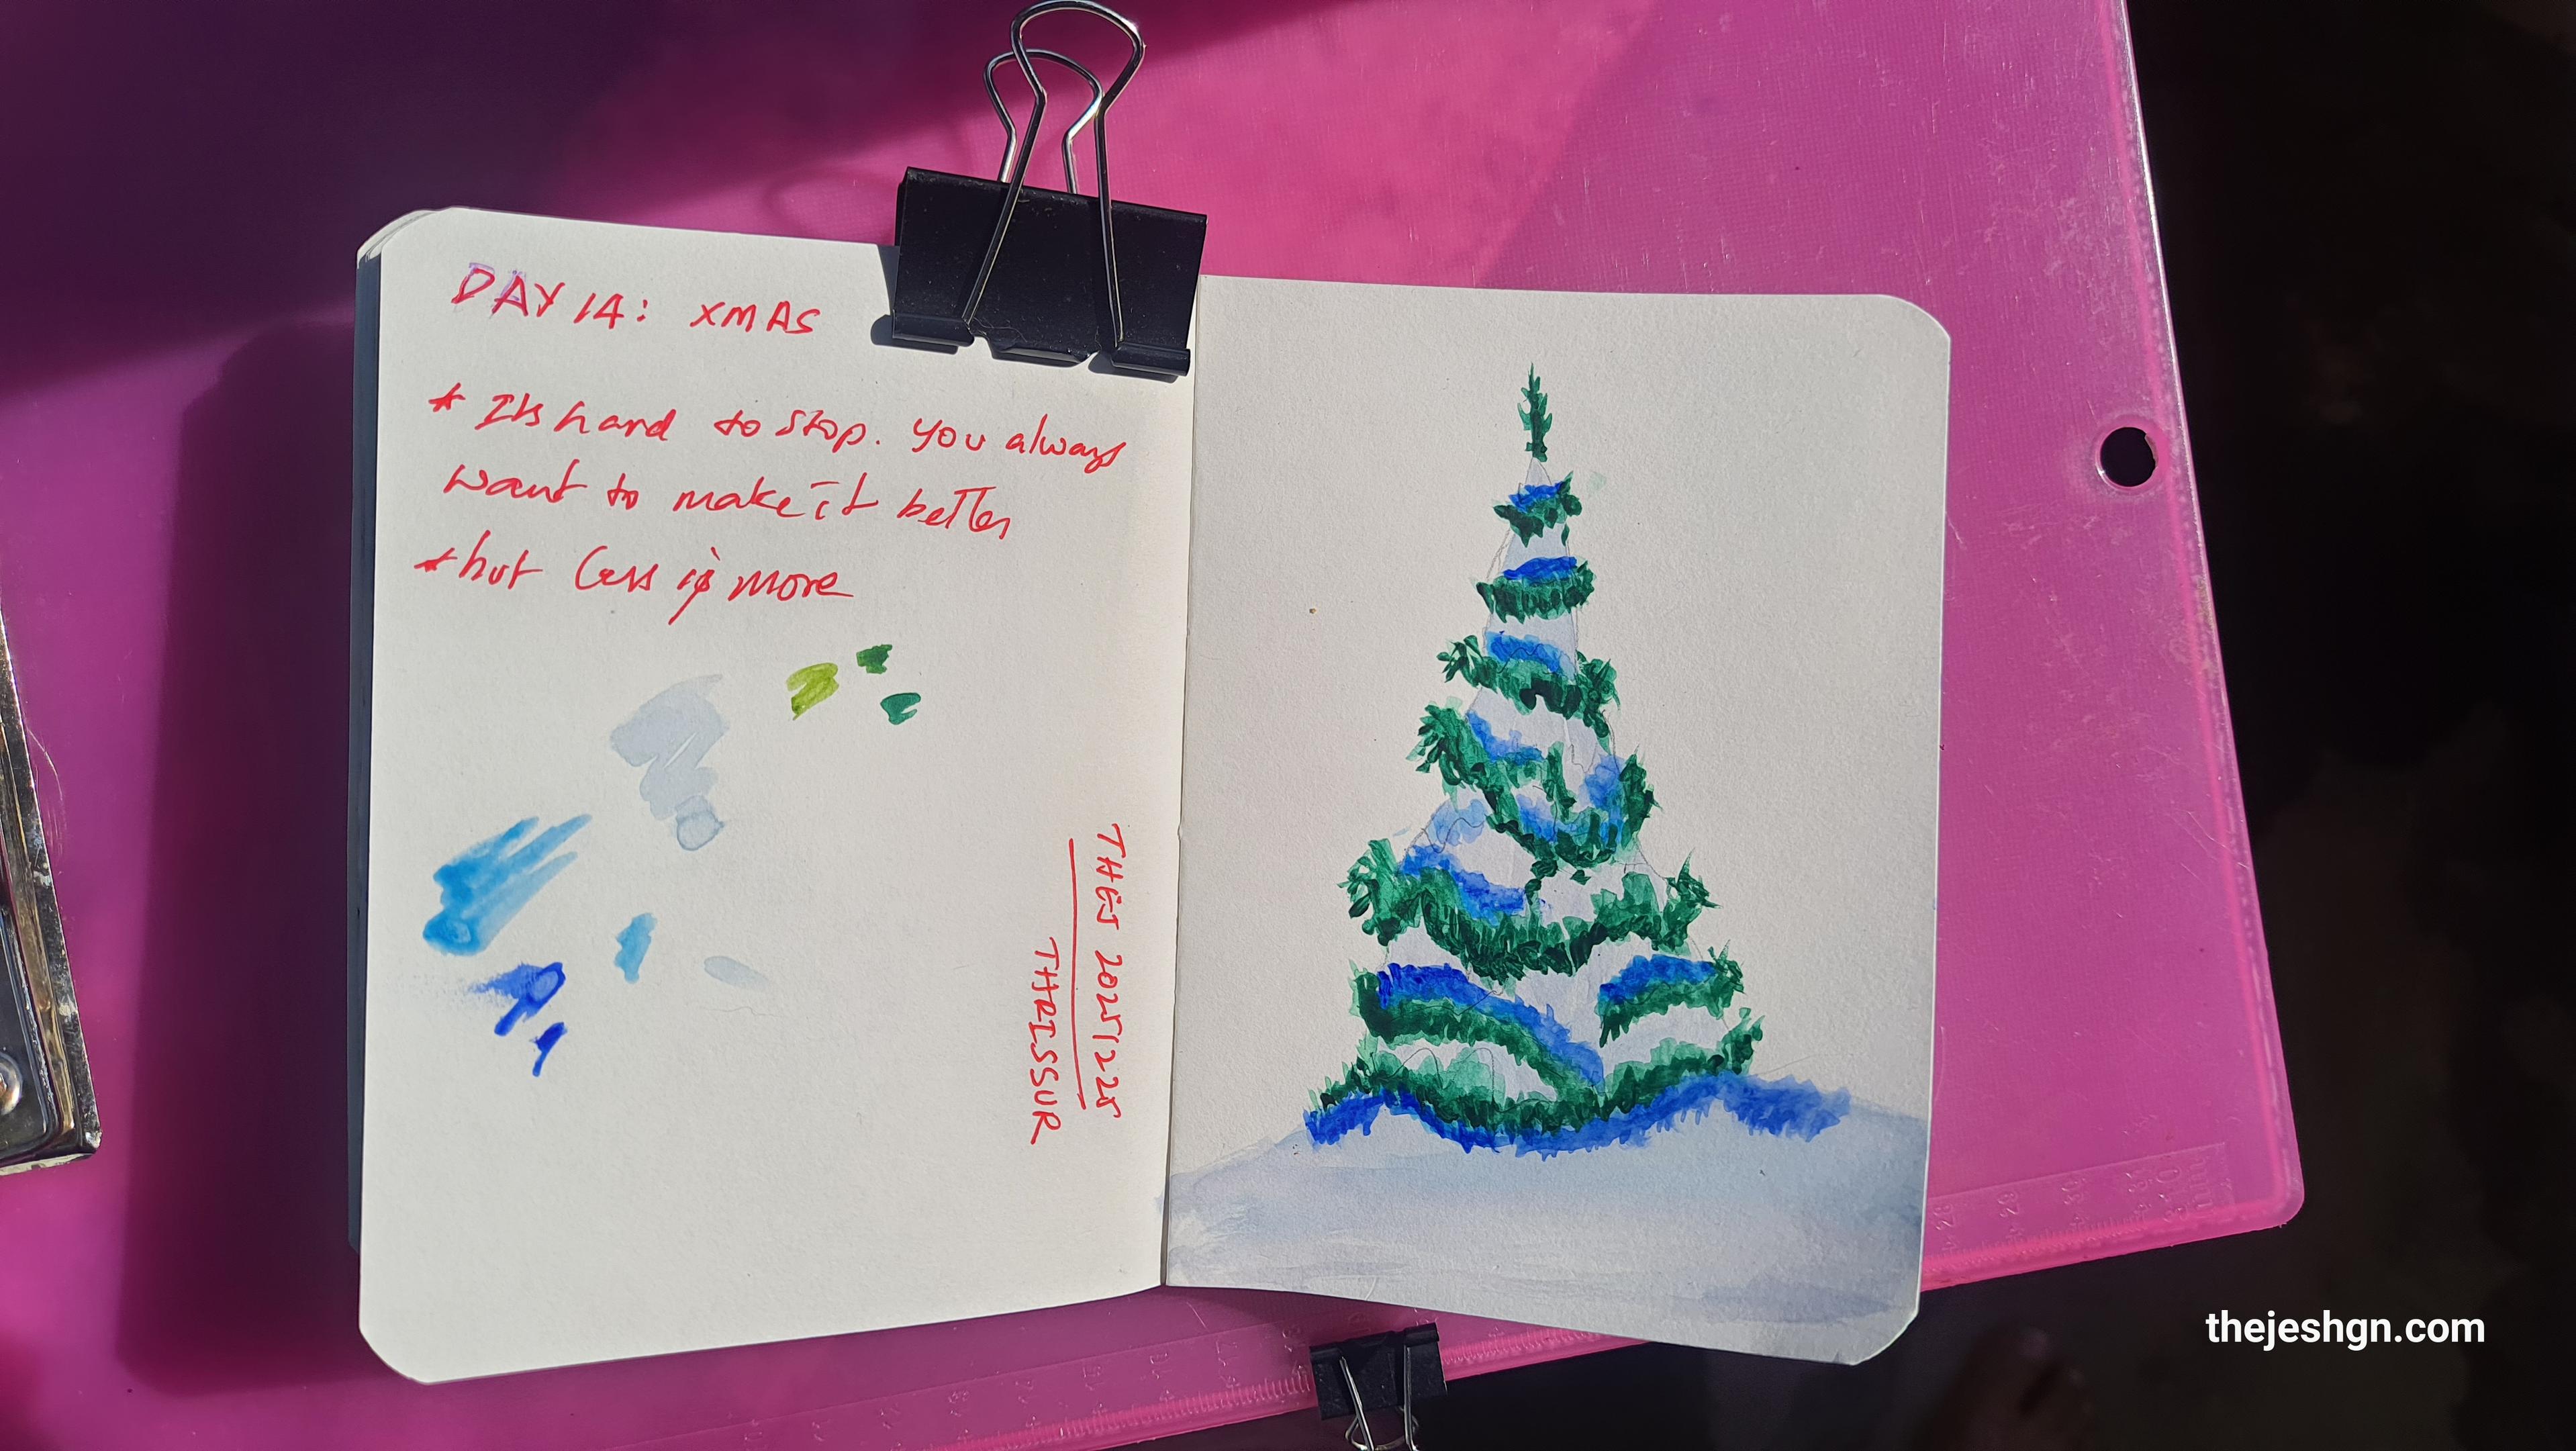 DAY 14: XMAS
* Its hard to stop. you always
want to make it better
* but less is more
THEJ 20251225
THRISSUR
thejeshgn.com